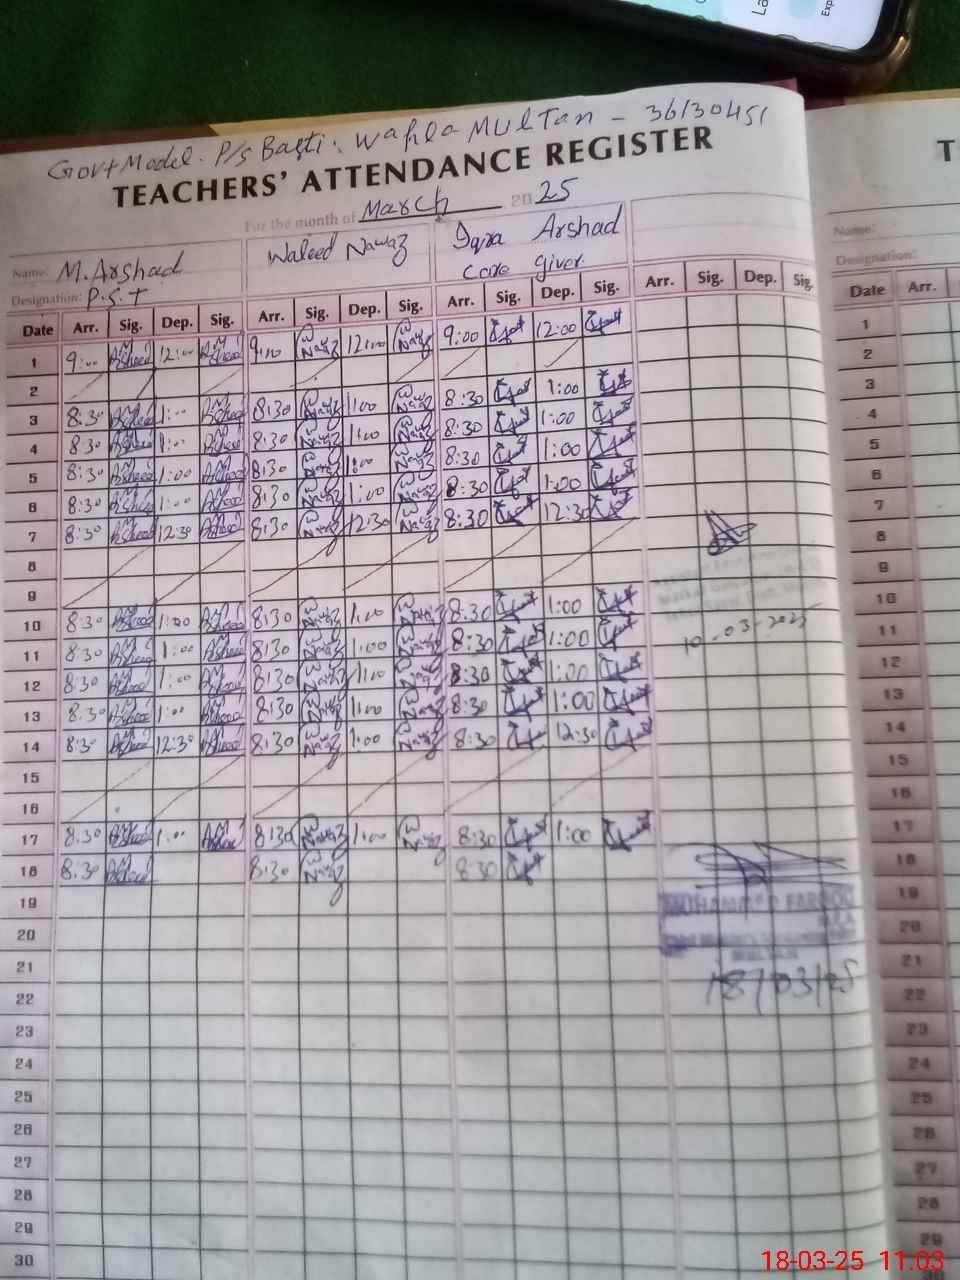 Govt Model. P/s Basti. Wahla Multan - 36130451
TEACHERS' ATTENDANCE REGISTER
For the month of March 2025
Name: M.Arshad Waleed Nawaz Iqra Arshad
Designation: P.S.T Care giver
Date Arr. Sig. Dep. Sig. Arr. Sig. Dep. Sig. Arr. Sig. Dep. Sig. Arr. Sig. Dep. Sig.
1 9:00 Arshad 12:00 Arshad 9:00 W Nawaz 12:00 W Nawaz 9:00 12:00
2
3 8:30 Arshad 1:00 Arshad 8:30 W Nawaz 1:00 W Nawaz 8:30 1:00
4 8:30 Arshad 1:00 Arshad 8:30 W Nawaz 1:00 W Nawaz 8:30 1:00
5 8:30 Arshad 1:00 Arshad 8:30 W Nawaz 1:00 W Nawaz 8:30 1:00
6 8:30 Arshad 1:00 Arshad 8:30 W Nawaz 1:00 W Nawaz 8:30 1:00
7 8:30 Arshad 12:30 Arshad 8:30 W Nawaz 12:30 W Nawaz 8:30 12:30
8
9
10 8:30 Arshad 1:00 Arshad 8:30 W Nawaz 1:00 W Nawaz 8:30 1:00
11 8:30 Arshad 1:00 Arshad 8:30 W Nawaz 1:00 W Nawaz 8:30 1:00
10-03-2025
12 8:30 Arshad 1:00 Arshad 8:30 W Nawaz 1:00 W Nawaz 8:30 1:00
13 8:30 Arshad 1:00 Arshad 8:30 W Nawaz 1:00 W Nawaz 8:30 1:00
14 8:30 Arshad 12:30 Arshad 8:30 W Nawaz 1:00 W Nawaz 8:30 12:30
15
16
17 8:30 Arshad 1:00 Arshad 8:30 W Nawaz 1:00 W Nawaz 8:30 1:00
18 8:30 Arshad 8:30 W Nawaz 8:30
19
MUHAMMAD FAROOQ
20
MULTAN
21
18/03/25
22
23
24
25
26
27
28
29
30
T
Name:
Designation:
Date Arr.
1
2
3
4
5
6
7
8
9
10
11
12
13
14
15
16
17
18
19
20
21
22
23
24
25
26
27
28
29
La
Exp
18-03-25 11:03